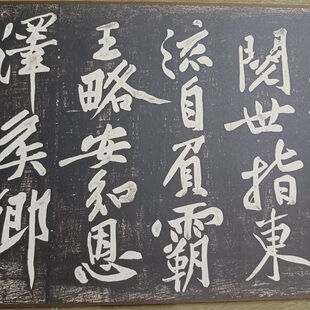 閱世指東
流自負霸
王略安知恩
澤侯鄉